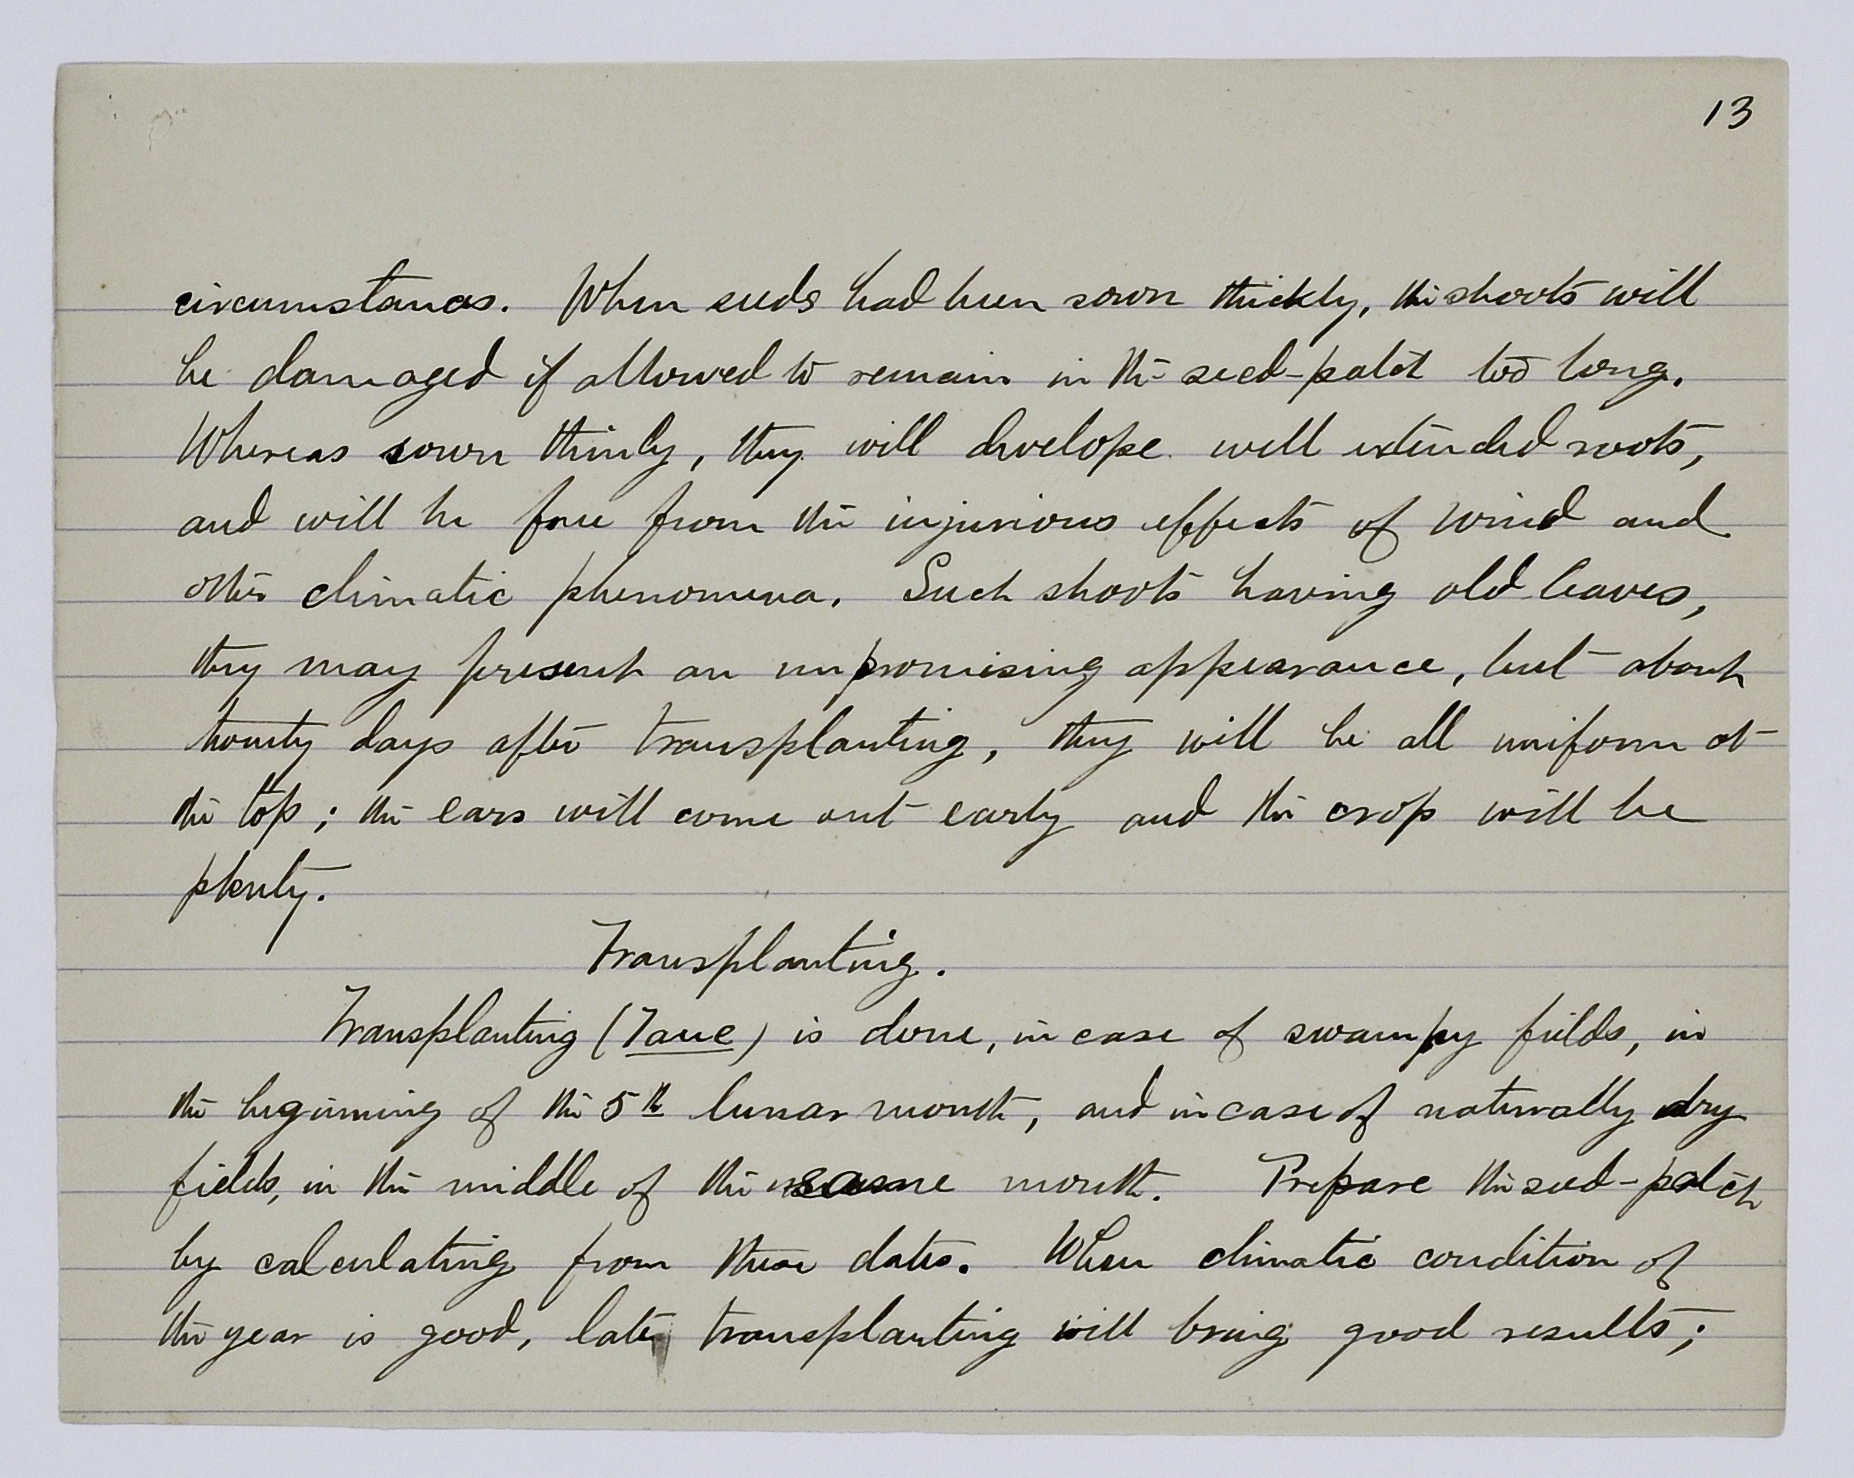 13
circumstances. When seeds had been sown thickly, the shoots will
be damaged if allowed to remain in the seed-patch too long.
Whereas sown thinly, they will develope well extended roots,
and will be free from the injurious effects of wind and
other climatic phenomena. Such shoots having old leaves,
they may present an unpromising appearance, but about
twenty days after transplanting, they will be all uniform at
the top; the ears will come out early and the crop will be
plenty.
Transplanting.
Transplanting (Taue) is done, in case of swampy fields, in
the beginning of the 5th lunar month, and in case of naturally dry
fields, in the middle of the same month. Prepare the seed-patch
by calculating from these dates. When climatic condition of
the year is good, late transplanting will bring good results;